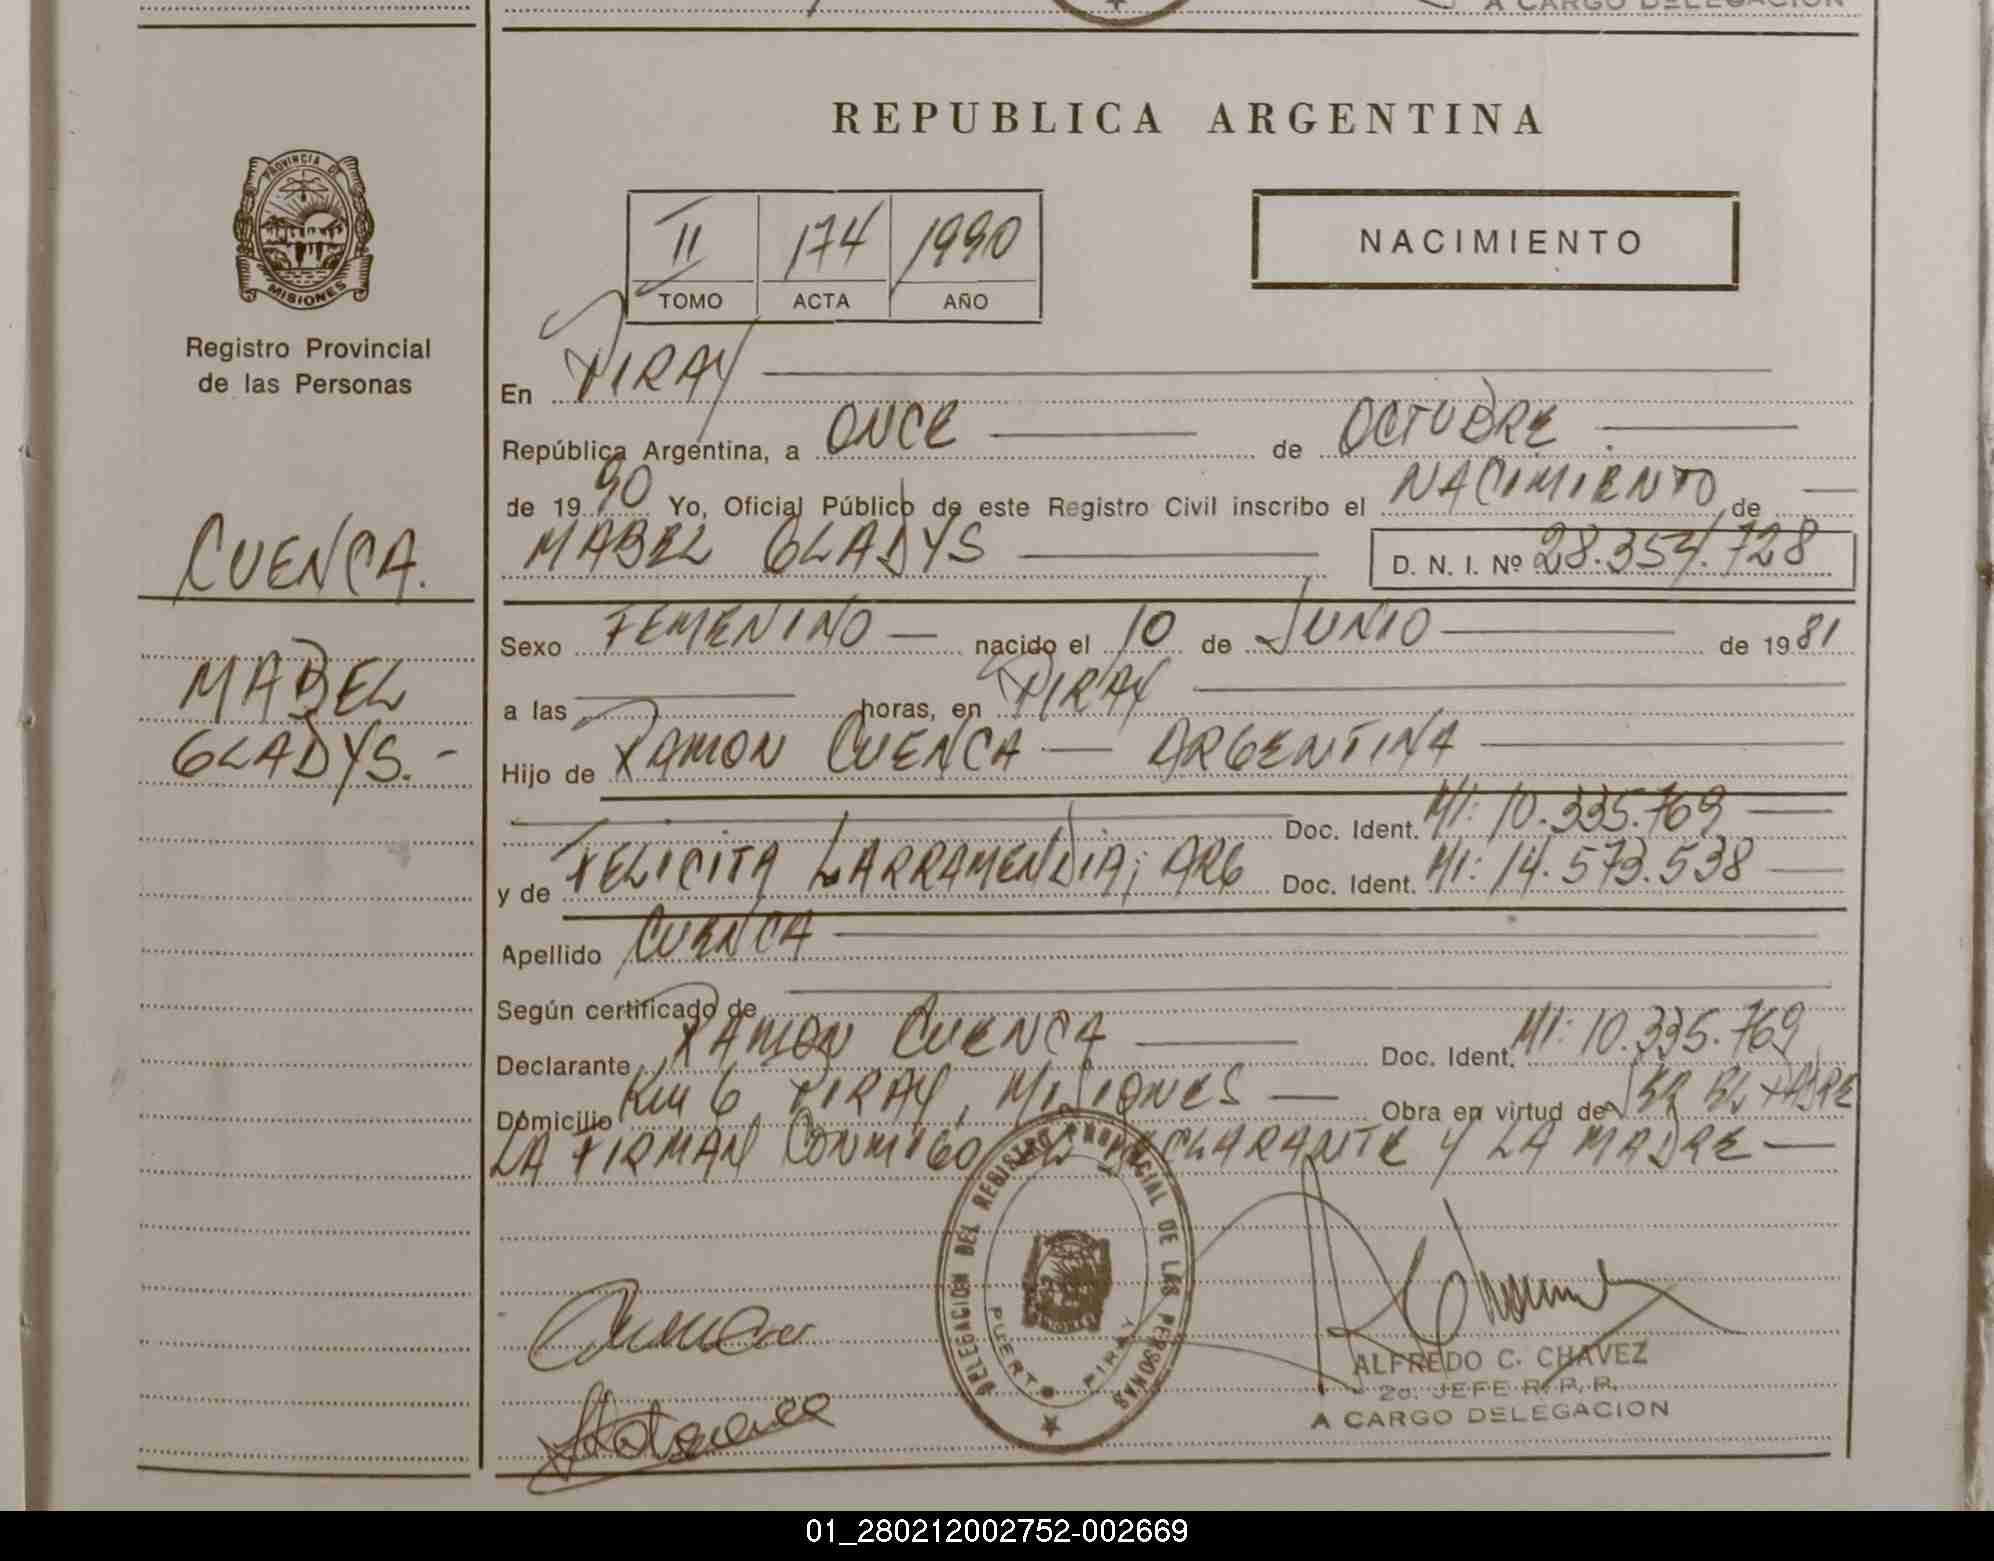 A CARGO DELEGACION
REPUBLICA ARGENTINA
PROVINCIA DE
MISIONES
Registro Provincial
de las Personas
II 174 1990
TOMO ACTA AÑO
NACIMIENTO
En PIRAY
República Argentina, a ONCE de OCTUBRE
de 19 90 Yo, Oficial Público de este Registro Civil inscribo el NACIMIENTO de
MABEL GLADYS D. N. I. Nº 28.354.728
CUENCA.
MABEL
GLADYS.-
Sexo FEMENINO nacido el 10 de JUNIO de 19 81
a las horas, en PIRAY
Hijo de RAMON CUENCA — ARGENTINA
Doc. Ident. MI: 10.335.769
y de FELICITA LARRAMENDIA; ARG Doc. Ident. MI: 14.573.538
Apellido CUENCA
Según certificado de
Declarante RAMON CUENCA Doc. Ident. MI: 10.335.769
Domicilio Km 6 PIRAY, MISIONES Obra en virtud de SER EL PADRE
LA FIRMAN CONMIGO EL DECLARANTE Y LA MADRE
DELEGACION DEL REGISTRO PROVINCIAL DE LAS PERSONAS
PUERTO PIRAY
ALFREDO C. CHAVEZ
2o. JEFE R. P. P.
A CARGO DELEGACION
01_280212002752-002669